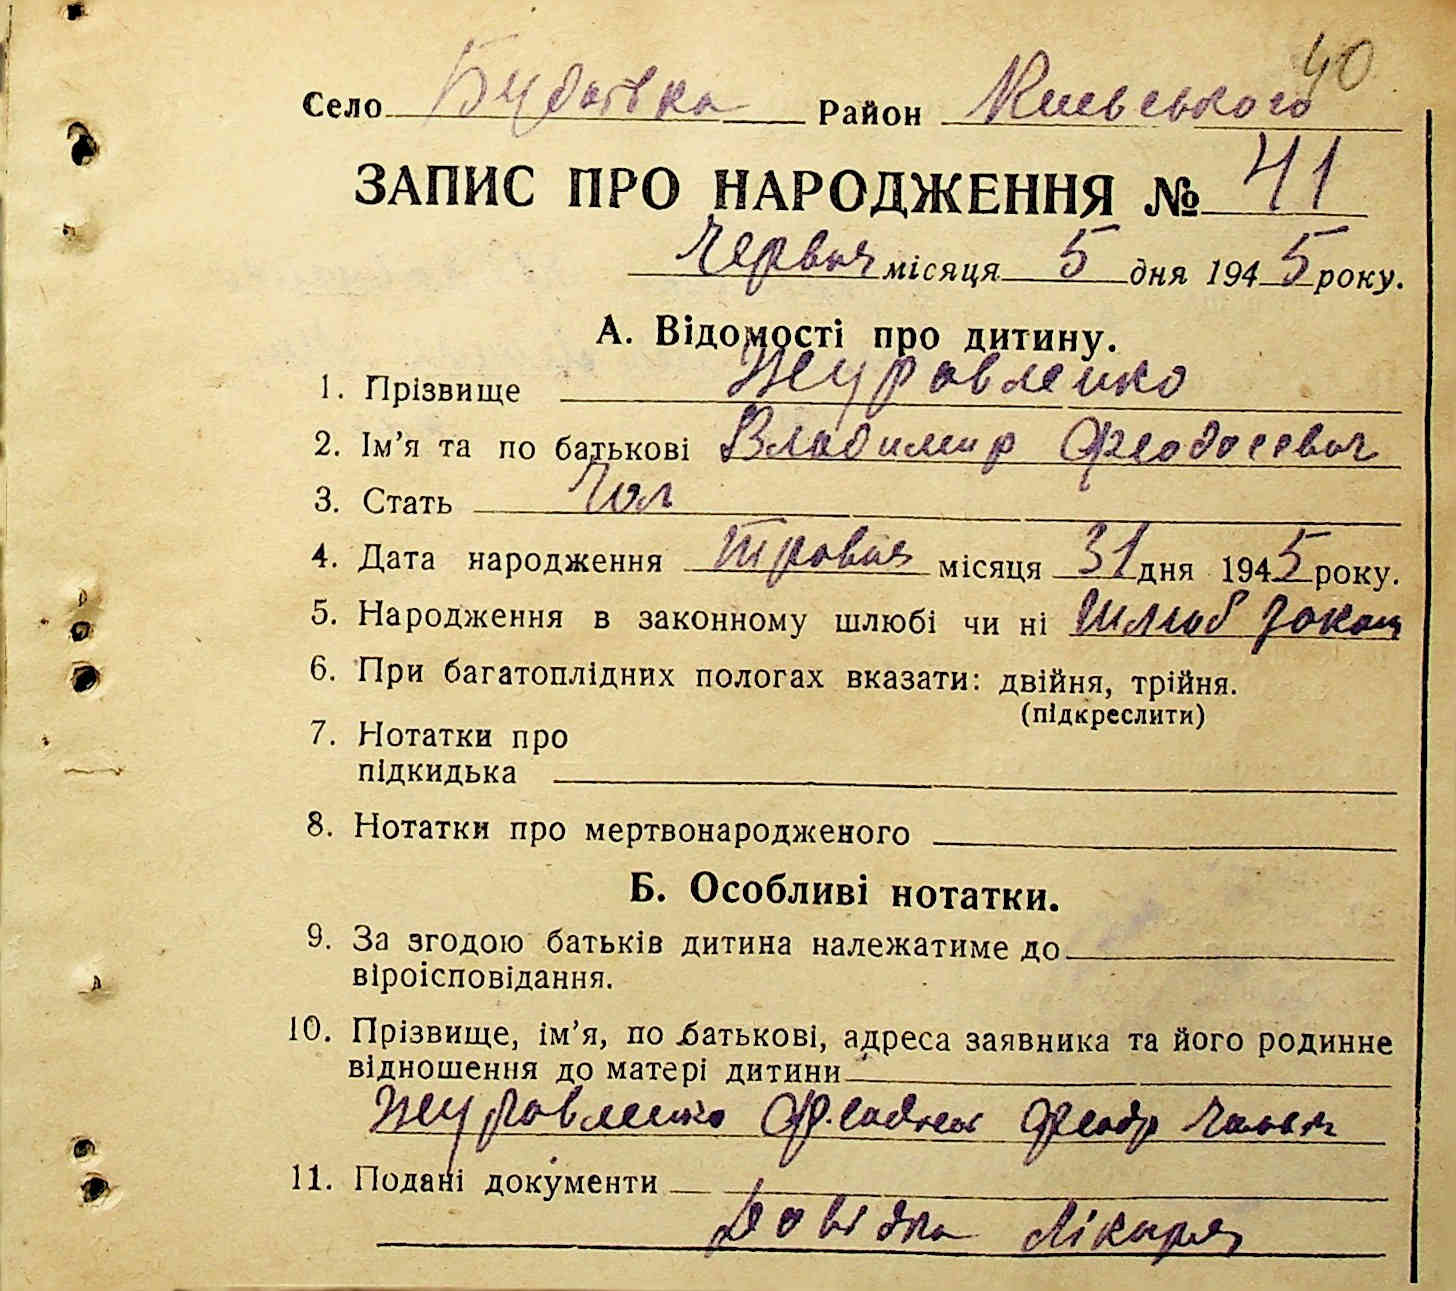 40
Село Будаївка Район Київського
ЗАПИС ПРО НАРОДЖЕННЯ № 41
Червня місяця 5 дня 1945 року.
А. Відомості про дитину.
1. Прізвище Журавленко
2. Ім'я та по батькові Владимир Феодосевич
3. Стать Чол
4. Дата народження Травня місяця 31 дня 1945 року.
5. Народження в законному шлюбі чи ні Шлюб
6. При багатоплідних пологах вказати: двійня, трійня.
(підкреслити)
7. Нотатки про
підкидька
8. Нотатки про мертвонародженого
Б. Особливі нотатки.
9. За згодою батьків дитина належатиме до
віроісповідання.
10. Прізвище, ім'я, по батькові, адреса заявника та його родинне
відношення до матері дитини
Журавленко
11. Подані документи
Довідка Лікаря